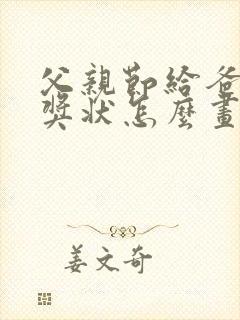 父親節給爸
獎狀怎麼畫
姜文奇